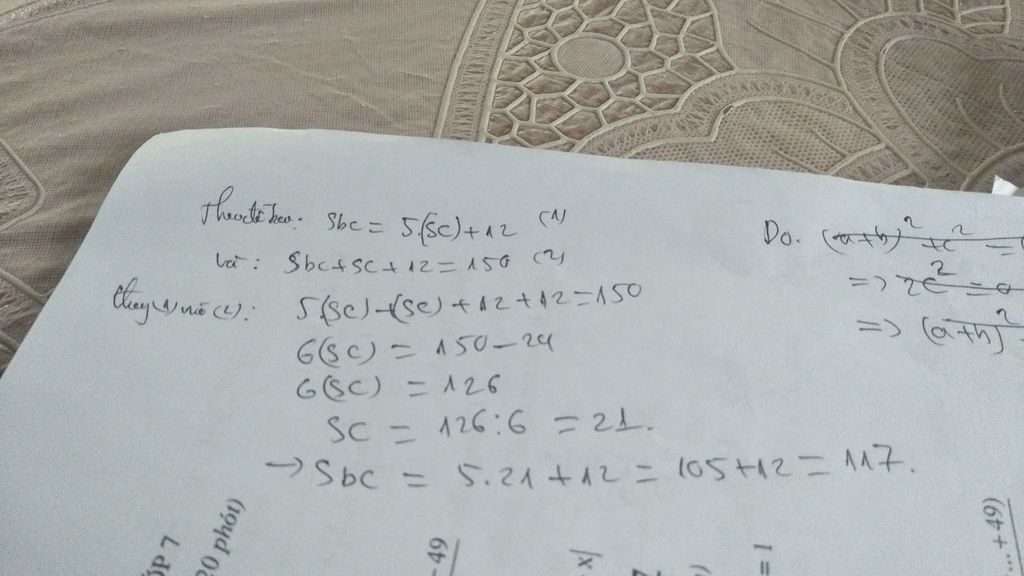 Theo đề ra: Sbc = 5.(SC) + 12 (1)
và: Sbc + SC + 12 = 150 (2)
thay (1) vào (2): 5(SC) + (SC) + 12 + 12 = 150
6(SC) = 150 - 24
6(SC) = 126
SC = 126 : 6 = 21.
→ Sbc = 5.21 + 12 = 105 + 12 = 117.
Do. (a+b)² + c² =
=> 2c² = 0
=> (a+b)²
ỚP 7
20 phút)
- 49
x|
= 1
... + 49)